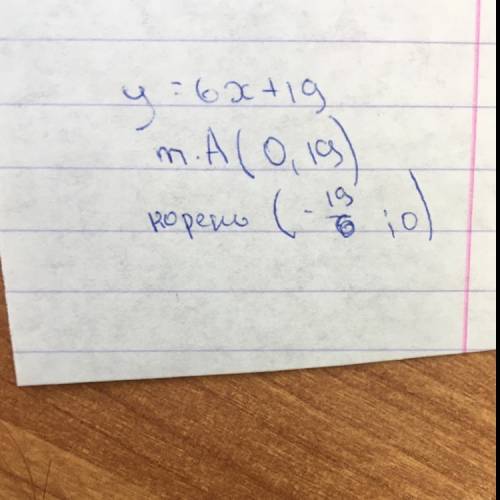 y = 6x + 19
т. A (0, 19)
корень (-19/6 ; 0)